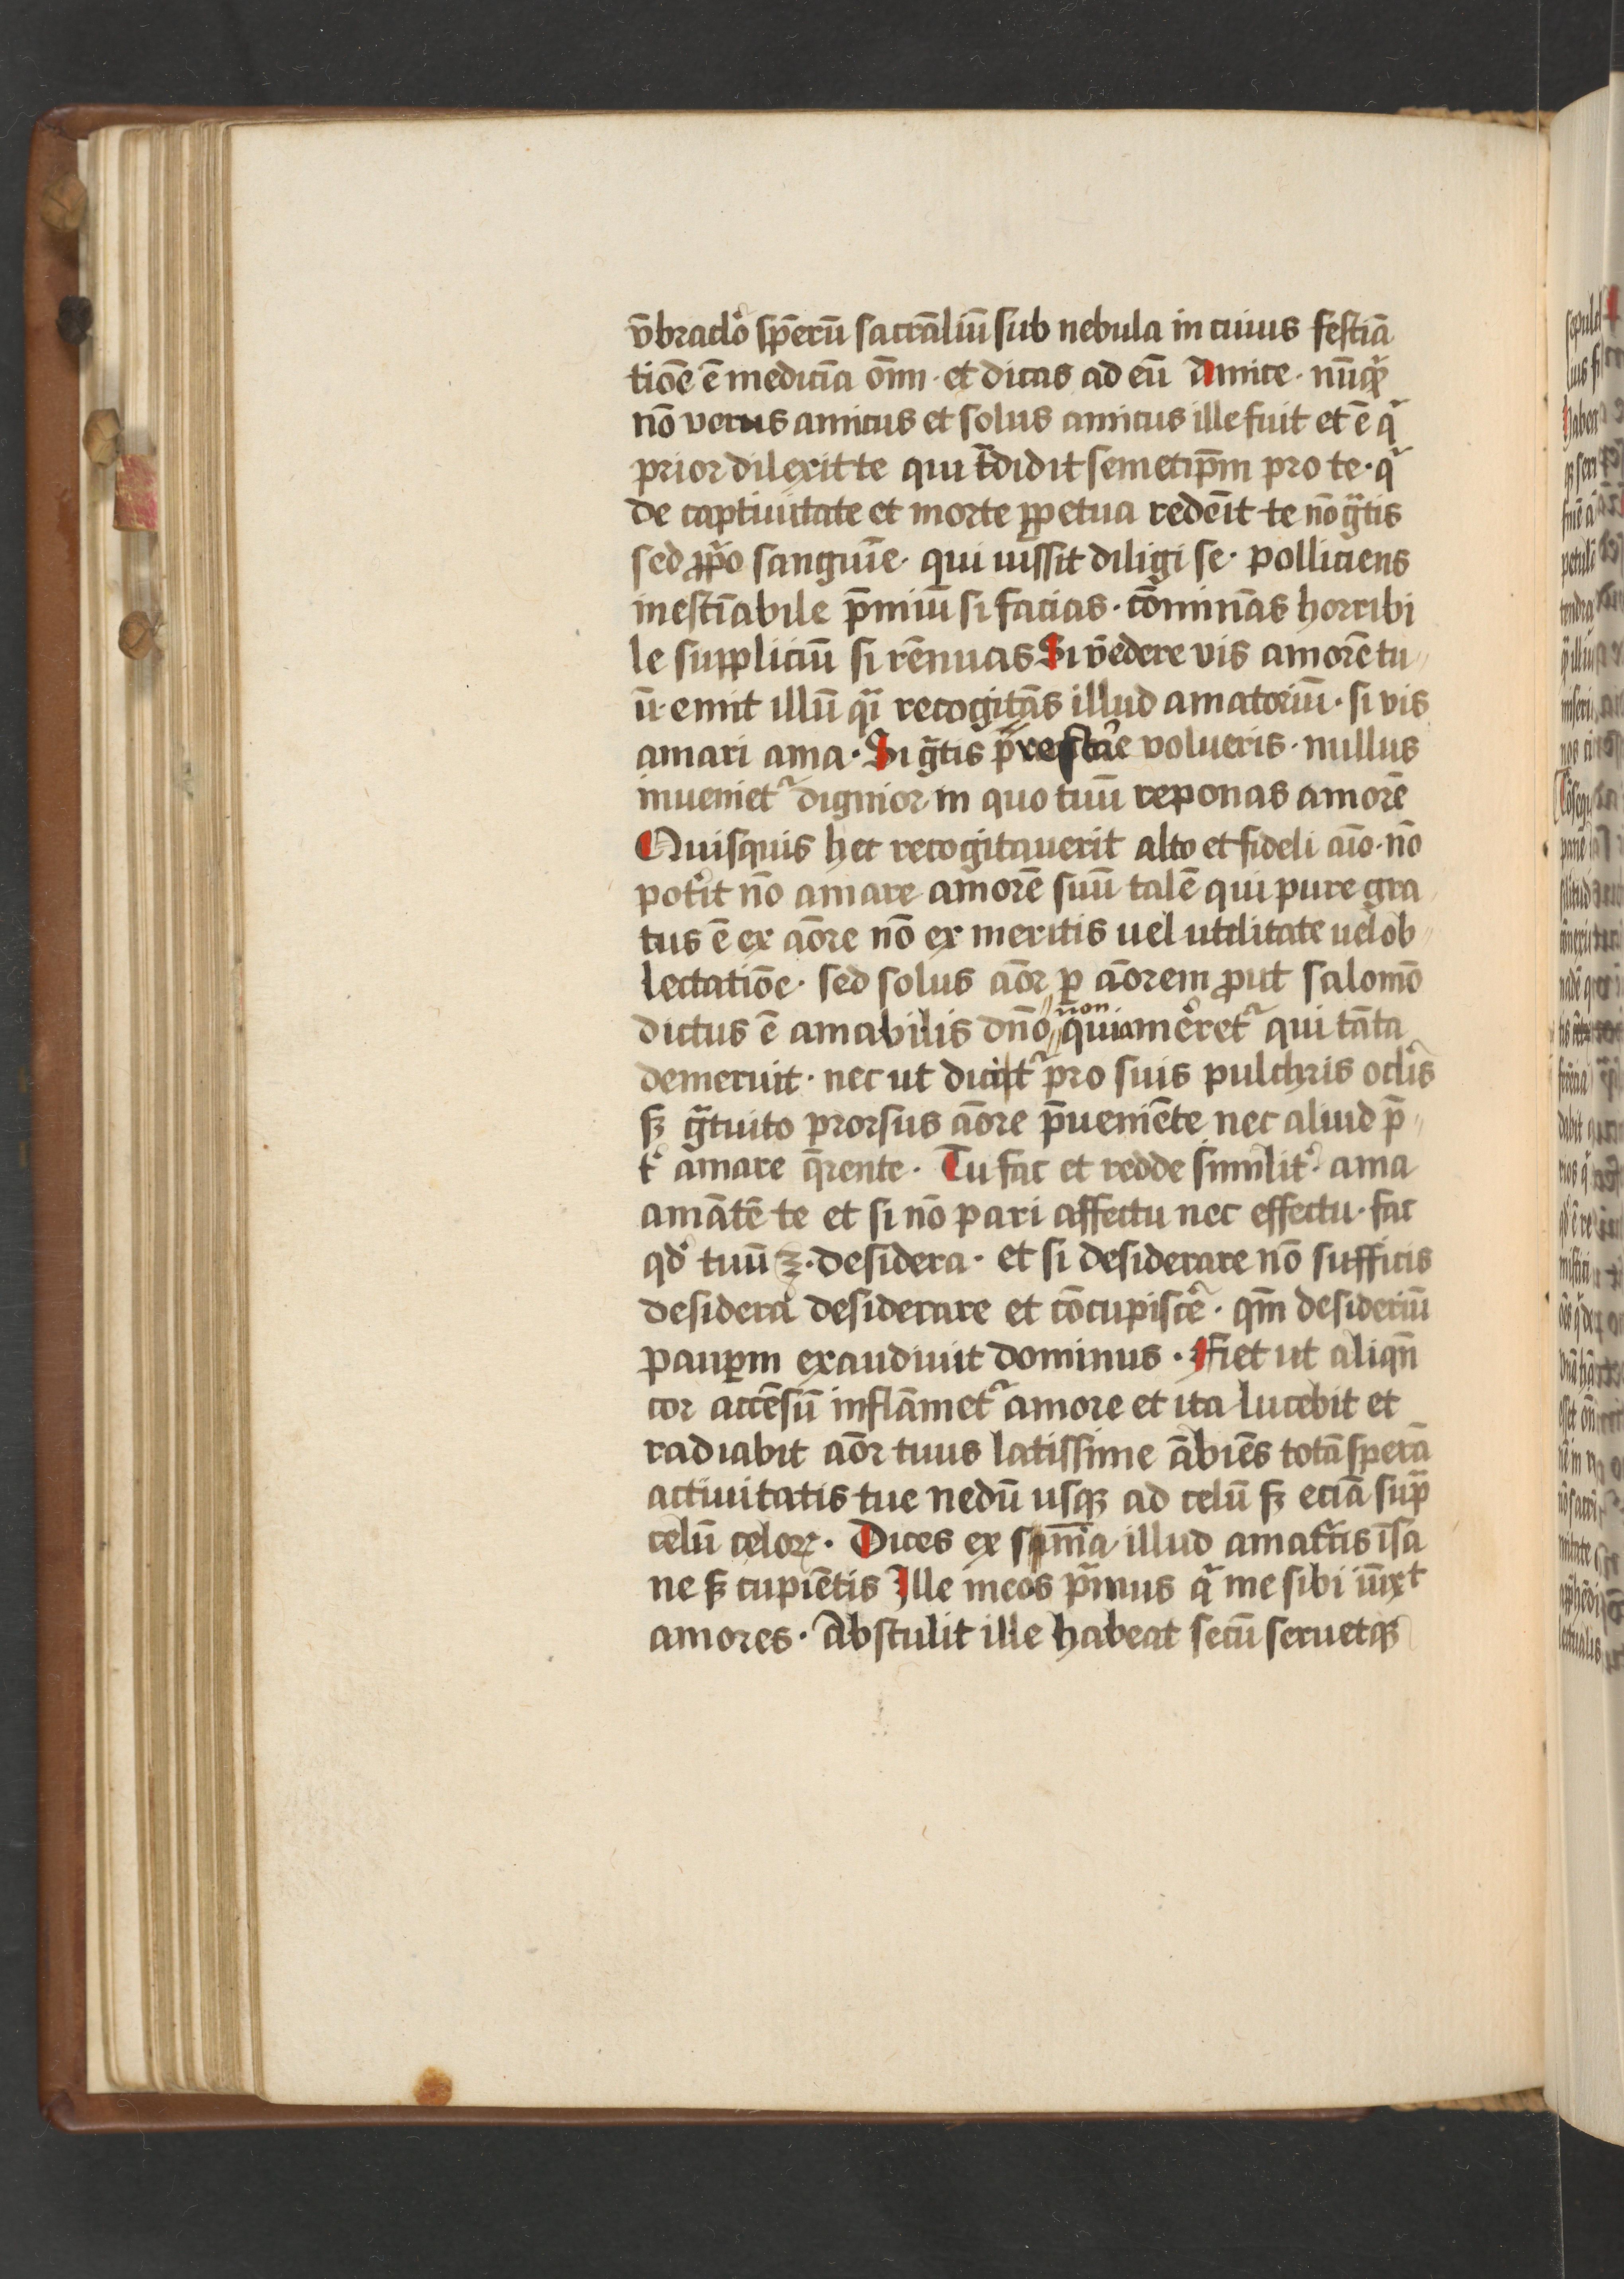 v̄bracl̓o sp̄erū sacrām̄liū sub nebula in cuius festiā
tiōe ē medicīa om̄i · et dicas ad eū Amice · nūq̄͛
nō verus amicus et solus amicus ille fuit et ē q͛
prior dilexit te qui t͛didit semetip̄m pro te · q͛
de captiuitate et morte ꝑpetua redēit te nō g͛tis
sed ꝓp͛o sanguīe · qui iussit diligi se · polliciens
inestīabile p̄miū si facias · cōminās horribi
le suppliciū si rēnuas Si v̄edere vis amorē tu
ū · emit illū q͛ recogitās illud amatoriū · si vis
amari ama · Si g͛tis p̄restar̓e volueris · nullus
inueniet͛ dignior in quo tuū reponas amorē
Quisquis hec recogitauerit alto et fideli aīo · nō
pot̓it nō amare amorē suū talē qui pure gra
tus ē ex aōre nō ex meritis uel utilitate uel ob
lectatiōe · sed solus aōr ꝑ aōrem ꝓut salomō
dictus ē amabilis dn̄o non quia mer̓et͛ qui tāta
demeruit · nec ut dicit͛ pro suis pulchris ocl̓is
sꝫ g͛tuito prorsus aōre p̄ueniēte nec aliud p̄
t̓ amare q̄rente · Tu fac et redde similit̓ · ama
amātē te et si nō pari affectu nec effectu · fac
qd̓ tuū ē · desidera · et si desiderare nō sufficis
desidera desiderare et cōcupiscer̓e · qm̄ desideriū
pauꝑm exaudiuit dominus · Fiet ut aliqn̄
cor accēsū inflāmet͛ amore et ita lucebit et
radiabit aōr tuus latissime ābiēs totā sperā
actiuitatis tue nedū usqꝫ ad celū sꝫ eciā sup͛
celū celoꝝ · Dices ex sn̄īa illud amat͛cis īsa
ne sꝫ cupiētis Ille meos p͛mus q͛ me sibi iūxt
amores · Abstulit ille habeat secū seruetqꝫ